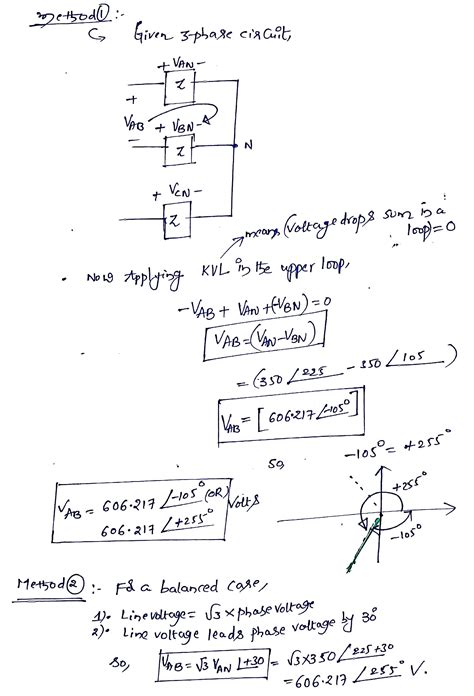 Method ① :-
↳ Given 3-phase circuit,
+ VAN -
Z
+
VAB + VBN -
-
Z
N
+ VCN -
Z
means (voltage drops sum in a loop) = 0
• Now Applying KVL in the upper loop,
-VAB + VAN + (-VBN) = 0
VAB = (VAN - VBN)
= (350 ∠225 - 350 ∠105)
VAB = [606.217 ∠-105°]
-105° = +255°
So,
VAB = 606.217 ∠-105° (OR) Volts
606.217 ∠+255°
+255°
-105°
Method ② :- For a balanced case,
1). Line voltage = √3 × phase voltage
2). Line voltage leads phase voltage by 30°
So, VAB = √3 VAN ∠+30 = √3×350 ∠225+30
= 606.217 ∠255° V.